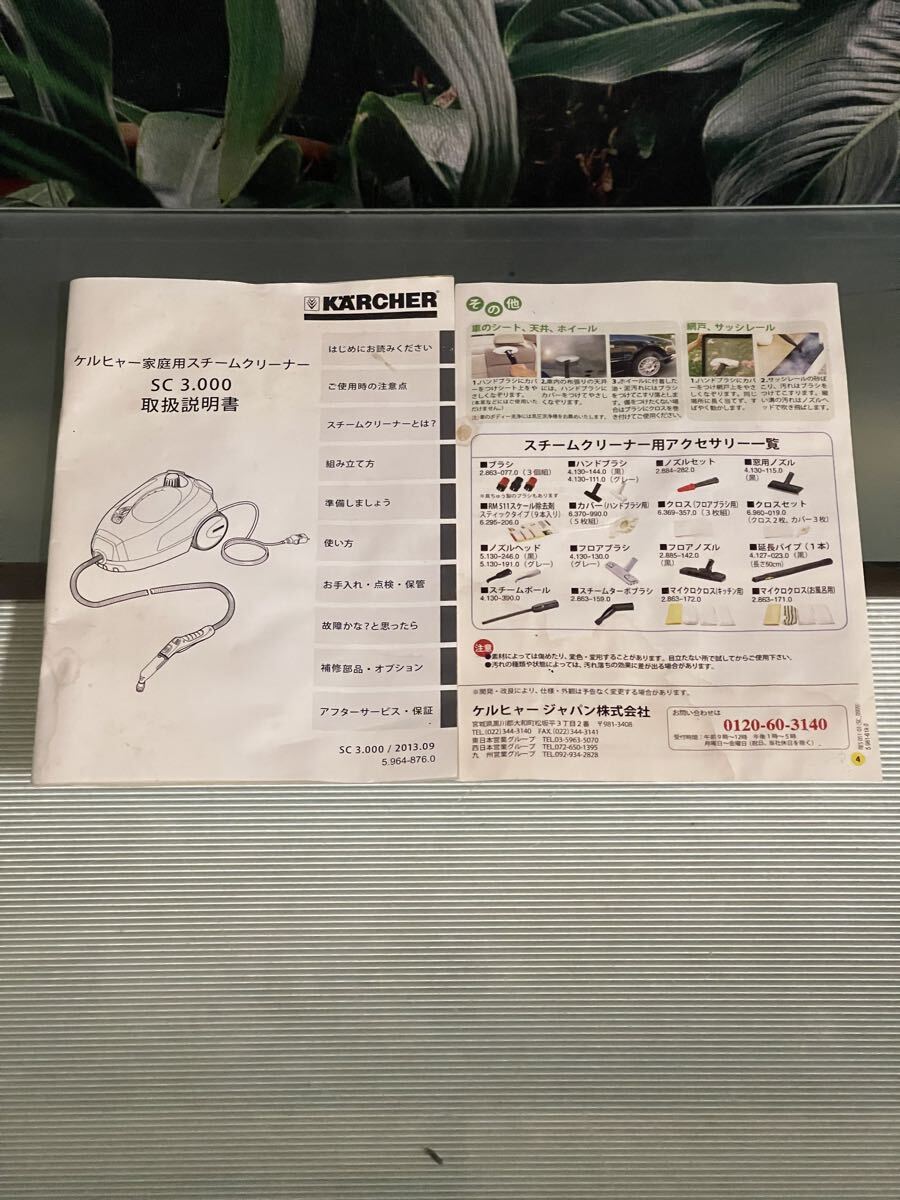 KÄRCHER
ケルヒャー家庭用スチームクリーナー
SC 3.000
取扱説明書
はじめにお読みください
ご使用時の注意点
スチームクリーナーとは?
組み立て方
準備しましょう
使い方
お手入れ・点検・保管
故障かな?と思ったら
補修部品・オプション
アフターサービス・保証
SC 3.000 / 2013.09
5.964-876.0
その他
車のシート、天井、ホイール
1.ハンドブラシにカバーをつけシート上をやさしくなぞります。
(本革などにはご使用いただけません。)
2.車内の布張りの天井には、ハンドブラシにカバーをつけてやさしくなぞります。
3.ホイールに付着した油・泥汚れにはブラシをつけてこすり落とします。傷をつけたくない場合はブラシにクロスを巻き付けてご使用ください。
注:車のボディー洗浄には高圧洗浄機をお薦めいたします。
網戸、サッシレール
1.ハンドブラシにカバーをつけ網戸上をやさしくなぞります。同じ場所に長く当てず、すばやく動かします。
2.サッシレールの砂ぼこり、汚れはブラシをつけてこすります。細い溝の汚れはノズルヘッドで吹き飛ばします。
スチームクリーナー用アクセサリー一覧
■ブラシ
2.863-077.0(3個組)
※真ちゅう製のブラシもあります
■ハンドブラシ
4.130-144.0(黒)
4.130-111.0(グレー)
■ノズルセット
2.884-282.0
■窓用ノズル
4.130-115.0
(黒)
■RM511スケール除去剤
スティックタイプ(9本入り)
6.295-206.0
■カバー(ハンドブラシ用)
6.370-990.0
(5枚組)
■クロス(フロアブラシ用)
6.369-357.0(3枚組)
■クロスセット
6.960-019.0
(クロス2枚、カバー3枚)
■ノズルヘッド
5.130-246.0(黒)
5.130-191.0(グレー)
■フロアブラシ
4.130-130.0
(グレー)
■フロアノズル
2.885-142.0
(黒)
■延長パイプ(1本)
4.127-023.0(黒)
(長さ50cm)
■スチームポール
4.130-390.0
■スチームターボブラシ
2.863-159.0
■マイクロクロス(キッチン用)
2.863-172.0
■マイクロクロス(お風呂用)
2.863-171.0
注意
●素材によっては傷めたり、変色・変形することがあります。目立たない所で試してからご使用下さい。
●汚れの種類や状態によっては、汚れ落ちの効果に差が出る場合があります。
※開発・改良により、仕様・外観は予告なく変更する場合があります。
ケルヒャー ジャパン株式会社
宮城県黒川郡大和町松坂平3丁目2番 〒981-3408
TEL.(022)344-3140 FAX.(022)344-3141
東日本営業グループ TEL.03-5963-5070
西日本営業グループ TEL.072-650-1395
九 州営業グループ TEL.092-934-2828
お問い合わせは
0120-60-3140
受付時間:午前9時〜12時 午後1時〜5時
月曜日〜金曜日(祝日、当社休日を除く)
4